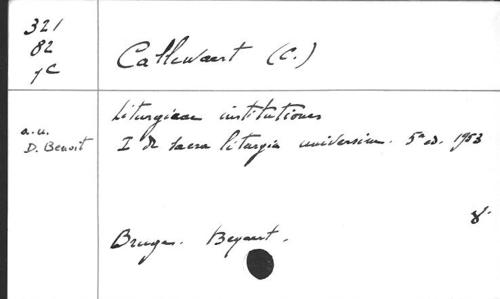 321
82
7C
Callewaert (C.)
a.u.
D. Benoit
Liturgicae institutiones
I De sacra liturgia universim. 5a ed. 1953
8°
Bruges. Beyaert.